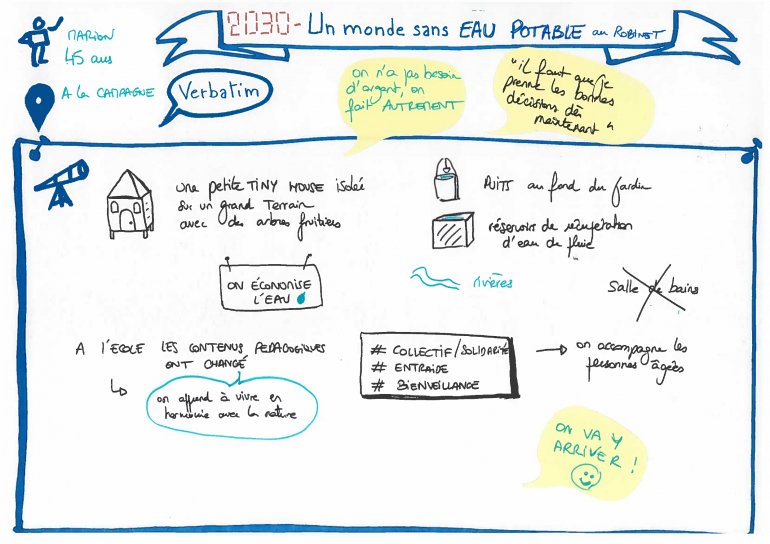 2030 - Un monde sans EAU POTABLE au ROBINET
MARION
45 ans
A la CAMPAGNE
Verbatim
on n'a pas besoin
d'argent, on
fait AUTREMENT
"il faut que je
prenne les bonnes
décisions dès
maintenant"
une petite TINY HOUSE isolée
sur un grand Terrain
avec des arbres fruitiers
PUITS au fond du jardin
réservoirs de récupération
d'eau de pluie
ON ÉCONOMISE
L'EAU
rivières
Salle de bains
A L'ECOLE LES CONTENUS PEDAGOGIQUES
ONT CHANGÉ
on apprend à vivre en
harmonie avec la nature
# COLLECTIF/SOLIDARITÉ
# ENTRAIDE
# BIENVEILLANCE
on accompagne les
personnes âgées
ON VA Y
ARRIVER !